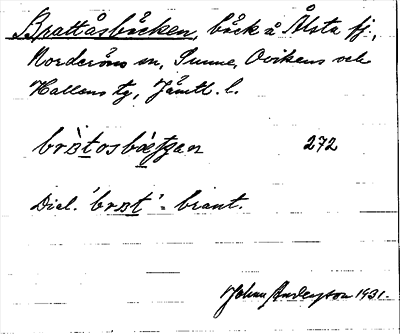 Brattåsbäcken, bäck å Ålsta fj.,
Norderöns sn, Sunne, Ovikens och
Hallens tg, Jämtl. l.
272
Dial. 'brɒt' = brant.
Johan Anderson 1931.